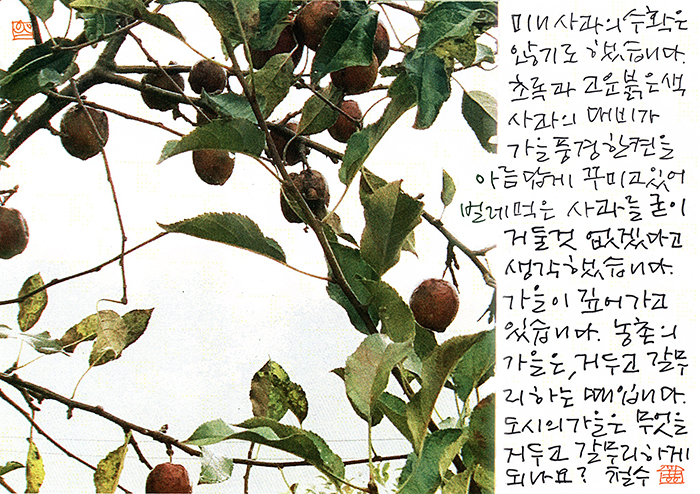 미내 사과의 수확은
않기로 했습니다.
초록과 고운 붉은색
사과의 대비가
가을 풍경 한켠을
아름답게 꾸미고 있어
벌레먹은 사과를 굳이
거둘것 없겠다고
생각했습니다.
가을이 깊어가고
있습니다. 농촌의
가을은, 거두고 갈무
리하는 때입니다.
도시의 가을은 무엇을
거두고 갈무리하게
되나요? 철수